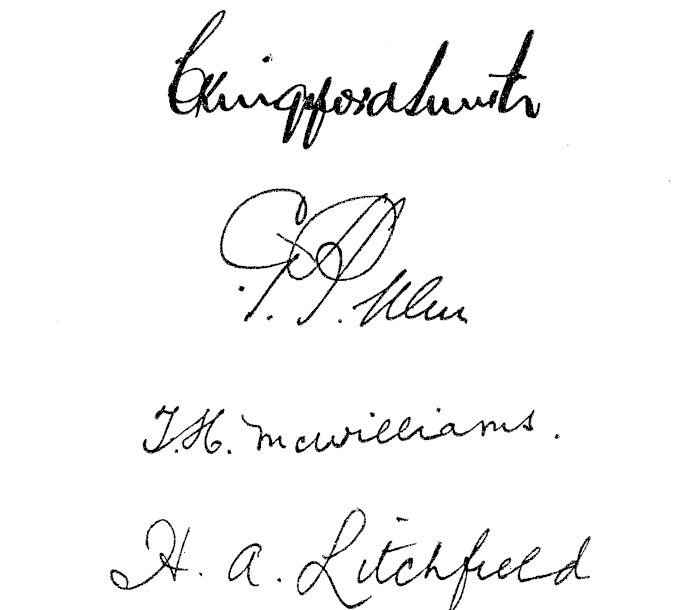 CKingsfordSmith
C.T.P. Ulm
T.H. McWilliams.
H. A. Litchfield